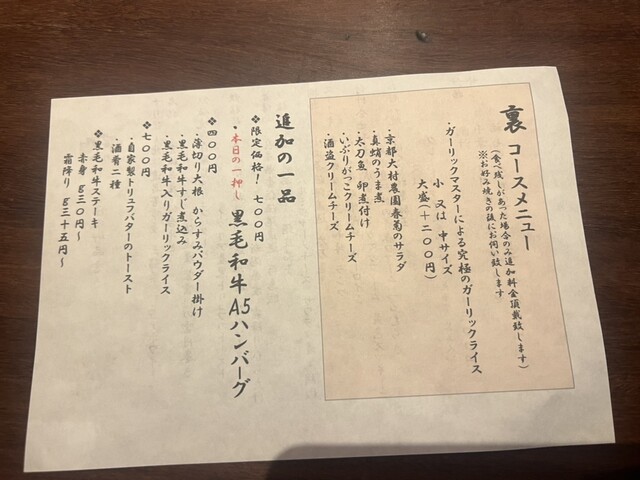 裏 コースメニュー
(食べ残しがあった場合のみ追加料金頂戴致します)
※お好み焼きの後にお伺い致します
・ガーリックマスターによる究極のガーリックライス
小 又は 中サイズ
大盛(+二〇〇円)
・京都大村農園春菊のサラダ
・真蛸のうま煮
・太刀魚 卵煮付け
・いぶりがっこクリームチーズ
・酒盗クリームチーズ
追加の一品
❖限定価格! 七〇〇円
・本日の一押し 黒毛和牛A5ハンバーグ
❖四〇〇円
・薄切り大根 からすみパウダー掛け
・黒毛和牛すじ煮込み
・黒毛和牛入りガーリックライス
❖七〇〇円
・自家製トリュフバターのトースト
・酒肴二種
❖黒毛和牛ステーキ
赤身 g三〇円~
霜降り g三十五円~